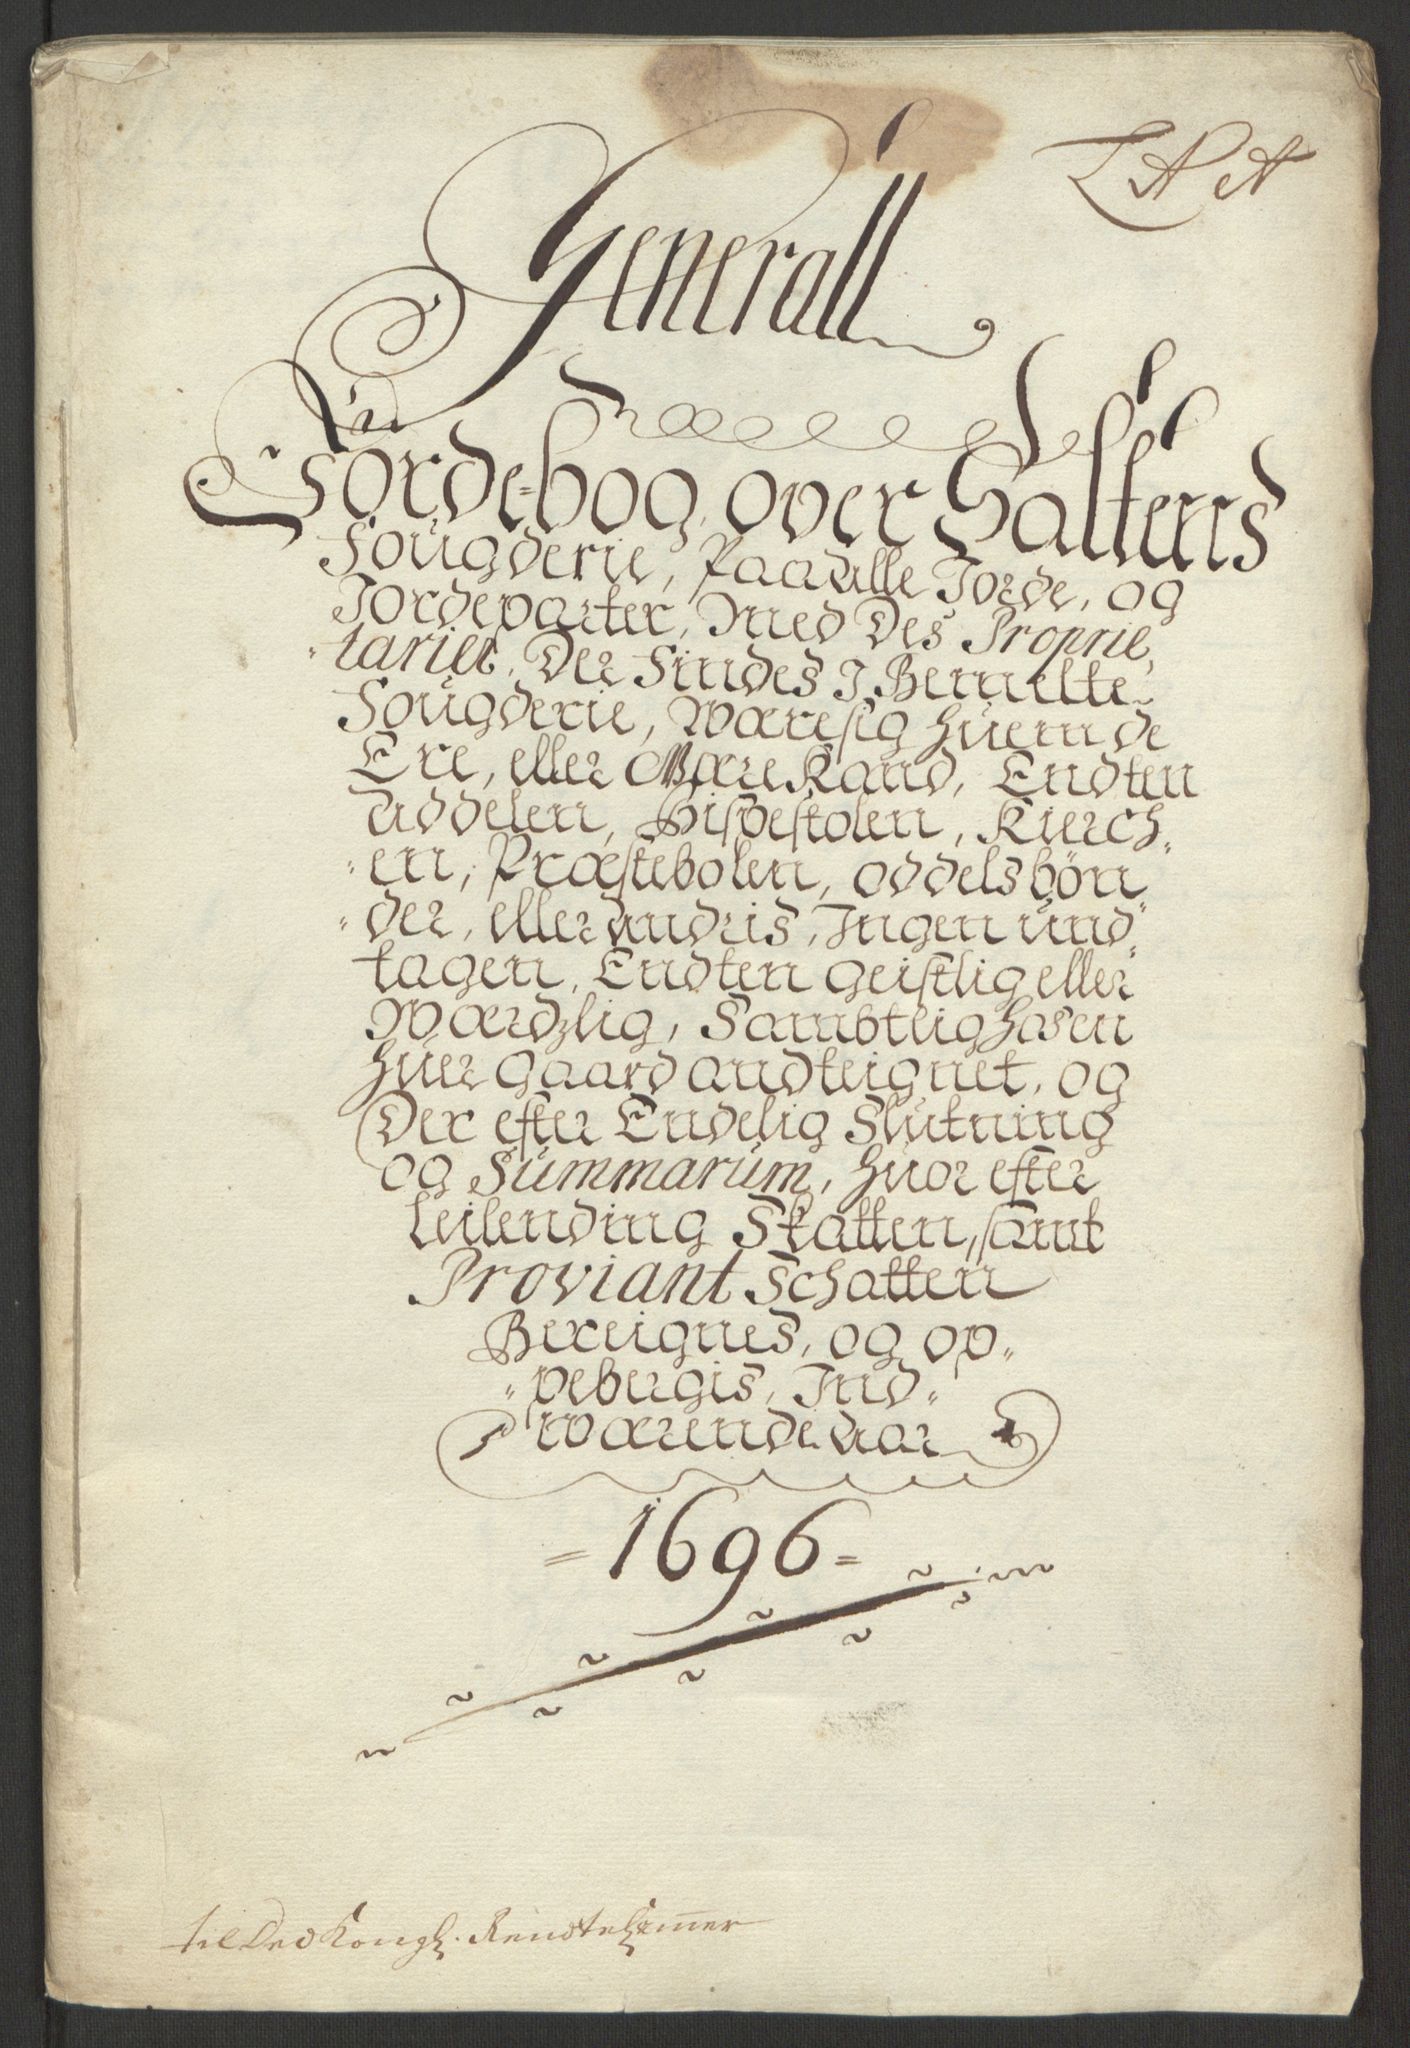 Lit A
Generall
Jordebog over Saltens
Fougderie, Paa alle Jorde, og
Jordeparter, Med Des Proprie,
"tarier, Der Findes J Bemelte
Fougderie, Wære sig Huem de
Ere, eller Være Kand, Endten
Addelen, Bispestolen, Kierch"
"en, Præstebolen, oddelsbön"
"der, eller andris, Ingen und"
tagen, Endten geistlig eller
Wærdzlig, Sambtlig Hosen
Huer gaard andteignet, og
Der efter Endelig Slutning
og Summarum, Huor efter
Leilending Skatten, samt
Proviant Schatten
Bereignes, og op"
"pebergis, Ind"
wærende aar
= 1696 =
til Ded Kongl. Rendtekammer